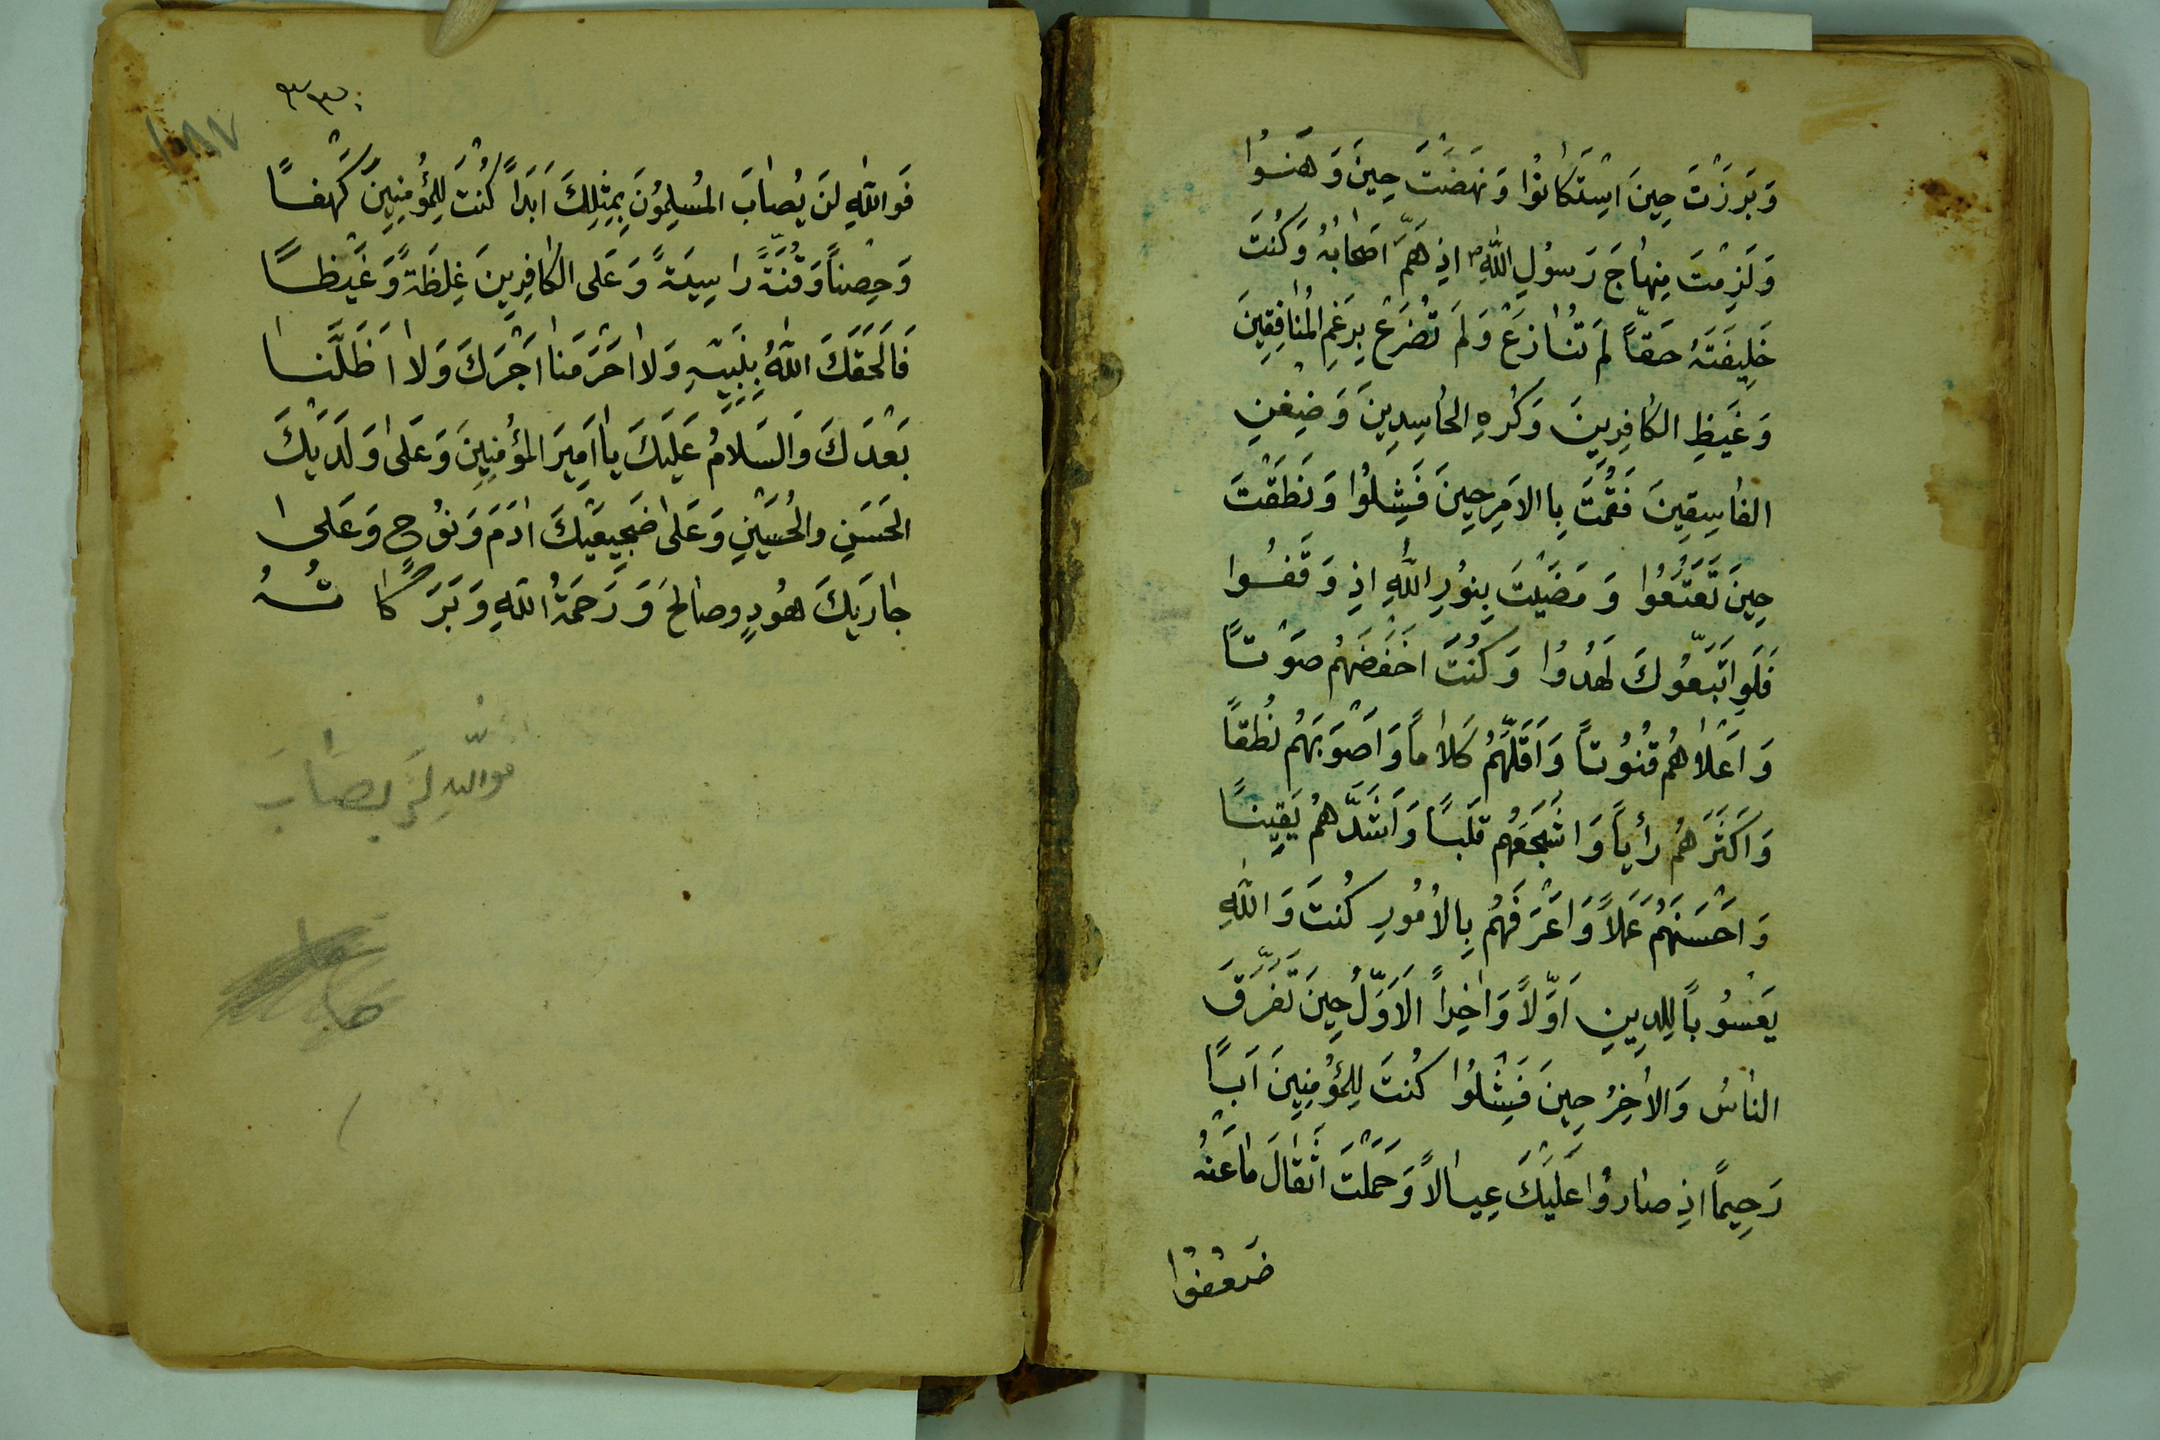 وَبَرَزْتَ حِينَ اسْتَكَانُوْا وَنَهَضْتَ حِينَ وَهَنُوْا
وَلَزِمْتَ مِنهَاجَ رَسُوْلِ اللّٰهِ ص اِذِ هَمَّ اَصْحَابُهُ وَكُنتَ
خَلِيفَتَهُ حَقّاً لَمْ تُنَازَعْ وَلَمْ تُضرَعْ بِرَغمِ المُنَافِقِينَ
وَغَيظِ الكَافِرِينَ وَكُرْهِ الحَاسِدِينَ وَضِغنِ
الفَاسِقِينَ فَقُمْتَ بِالاَمرِ حِينَ فَشِلُوْا وَنَطَقْتَ
حِينَ تَعَتَعُوْا وَمَضَيْتَ بِنُوْرِ اللّٰهِ اِذ وَقَفُوا
فَلَوِ اتَّبَعُوْكَ لَهُدُوْا وَكُنْتَ اَخفَضَهُم صَوْتاً
وَاَعْلَاهُم قُنُوْتاً وَاَقَلَّهُم كَلَاماً وَاَصْوَبَهُم نُطقاً
وَاَكثَرَهُم رَأياً وَاَشجَعَهُم قَلباً وَاَشَدَّهُم يَقِيناً
وَاَحْسَنَهُم عَمَلاً وَاَعْرَفَهُم بِالاُمُورِ كُنتَ وَاللّٰهِ
يَعْسُوْباً لِلدِينِ اَوَّلاً وَاٰخِراً الاَوَّلُ حِينَ تَفَرَّقَ
النَاسُ وَالاٰخِرُ حِينَ فَشِلُوْا كُنتَ لِلمُؤمِنِينَ اَباً
رَحِيماً اِذ صَارُوْا عَلَيْكَ عِيَالاً وَحَمَلْتَ اَثْقَالَ مَا عَنْهُ
ضَعُفُوْا
٣٣٠
١٨٧
فَوَاللّٰهِ لَنْ يُصَابَ المُسلِمُوْنَ بِمِثلِكَ اَبَداً كُنْتَ لِلمُؤْمِنِينَ كَهْفاً
وَحِصْناً وَقُنَّةً رَاسِيَةً وَعَلَى الكَافِرِينَ غِلظَةً وَغَيْظاً
فَاَلحَقَكَ اللّٰهُ بِنَبِيِّهِ وَلَا اَحْرَمَنَا اَجْرَكَ وَلَا اَضَلَّنَا
بَعْدَكَ وَالسَلَامُ عَلَيْكَ يَا اَمِيرَ المُؤْمِنِينَ وَعَلٰى وَلَدَيْكَ
الحَسَنِ وَالحُسَيْنِ وَعَلَى ضَجِيعَيْكَ اٰدَمَ وَنُوْحٍ وَعَلٰى
جَارَيكَ هُودٍ وصَالِحَ وَرَحمَةُ اللّٰهِ وَبَرَكَاتُهُ
فوالله لن يصابَ